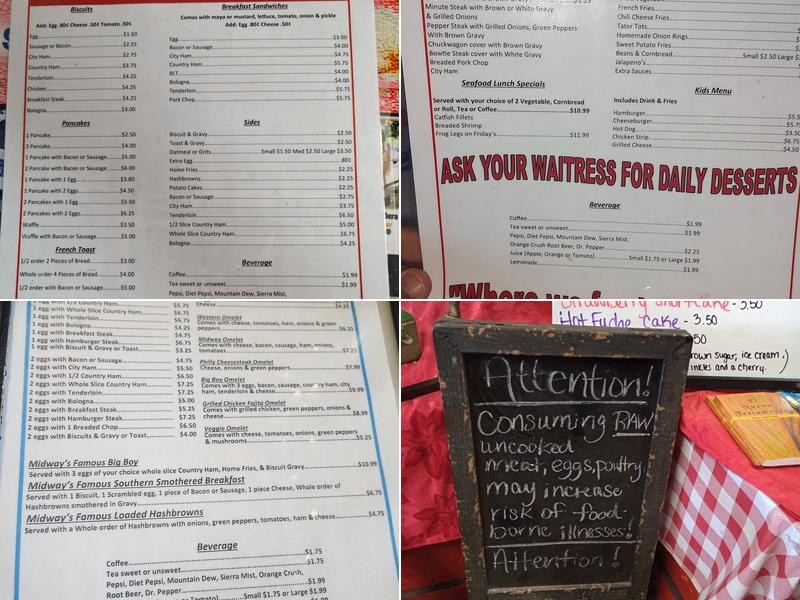 Biscuits
Add: Egg .80¢ Cheese .50¢ Tomato .50¢
Egg $1.50
Sausage or Bacon $2.25
City Ham $2.75
Country Ham $3.75
Tenderloin $4.25
Chicken $4.25
Breakfast Steak $4.25
Bologna $3.00
Pancakes
1 Pancake $2.50
2 Pancake $4.00
1 Pancake with Bacon or Sausage $5.00
2 Pancake with Bacon or Sausage $6.00
1 Pancake with 1 Egg $3.80
1 Pancake with 2 Eggs $4.50
2 Pancakes with 1 Egg $5.50
2 Pancakes with 2 Eggs $6.25
Waffle $3.50
Waffle with Bacon or Sausage $5.00
French Toast
1/2 order 2 Pieces of Bread $3.00
Whole order 4 Pieces of Bread $4.00
1/2 order with Bacon or Sausage $5.00
Breakfast Sandwiches
Comes with mayo or mustard, lettuce, tomato, onion & pickle
Add: Egg .80¢ Cheese .50¢
Egg $3.00
Bacon or Sausage $4.00
City Ham $4.75
Country Ham $5.75
BLT $4.00
Bologna $4.00
Tenderloin $5.75
Pork Chop $5.75
Sides
Biscuit & Gravy $2.50
Toast & Gravy $2.50
Oatmeal or Grits Small $1.50 Med $2.50 Large $3.50
Extra Egg 80¢
Home Fries $2.25
Hashbrowns $2.25
Potato Cakes $2.25
Bacon or Sausage $2.75
City Ham $3.75
Tenderloin $6.50
1/2 Slice Country Ham $5.00
Whole Slice Country Ham $6.75
Bologna $4.25
Beverage
Coffee $1.99
Tea sweet or unsweet $1.99
Pepsi, Diet Pepsi, Mountain Dew, Sierra Mist,
Minute Steak with Brown or White Gravy
& Grilled Onions
Pepper Steak with Grilled Onions, Green Peppers
With Brown Gravy
Chuckwagon cover with Brown Gravy
Bowtie Steak cover with White Gravy
Breaded Pork Chop
City Ham
French Fries
Chili Cheese Fries
Tater Tots
Homemade Onion Rings
Sweet Potato Fries
Beans & Cornbread Small $2.50 Large
Jalapeno's
Extra Sauces
Seafood Lunch Specials
Served with your choice of 2 Vegetable, Cornbread
or Roll, Tea or Coffee $10.99
Catfish Fillets
Breaded Shrimp
Frog Legs on Friday's $11.99
Kids Menu
Includes Drink & Fries
Hamburger
Cheeseburger
Hot Dog $3.50
Chicken Strip $6.75
Grilled Cheese $4.50
ASK YOUR WAITRESS FOR DAILY DESSERTS
Beverage
Coffee $1.99
Tea sweet or unsweet $1.99
Pepsi, Diet Pepsi, Mountain Dew, Sierra Mist,
Orange Crush Root Beer, Dr. Pepper $2.25
Juice (Apple, Orange or Tomato) Small $1.75 or Large $1.99
Lemonade $1.99
1 egg with 1/2 Country Ham $5.75
1 egg with Whole Slice Country Ham $6.75
1 egg with Tenderloin $6.75
1 egg with Bologna $4.25
1 egg with Breakfast Steak $4.75
1 egg with Hamburger Steak $6.75
1 egg with Biscuit & Gravy or Toast $3.25
2 eggs with Bacon or Sausage $4.75
2 eggs with City Ham $5.50
2 eggs with 1/2 Country Ham $6.50
2 eggs with Whole Slice Country Ham $7.25
2 eggs with Tenderloin $7.25
2 eggs with Bologna $5.00
2 eggs with Breakfast Steak $5.25
2 eggs with Hamburger Steak $7.25
2 eggs with 1 Breaded Chop $6.50
2 eggs with Biscuits & Gravy or Toast $4.00
Cheese $4.25
Western Omelet
Comes with cheese, tomatoes, ham, onions & green
peppers $6.25
Midway Omelet
Comes with cheese, bacon, sausage, ham, onions,
tomatoes $7.25
Philly Cheesesteak Omelet
Cheese, onions & green peppers $7.99
Big Boy Omelet
Comes with 3 eggs, bacon, sausage, country ham, city
ham, tenderloin & cheese $9.99
Grilled Chicken Fajita Omelet
Comes with grilled chicken, green peppers, onions &
cheese $8.99
Veggie Omelet
Comes with cheese, tomatoes, onions, green peppers
& mushrooms $5.25
Midway's Famous Big Boy
Served with 3 eggs of your choice whole slice Country Ham, Home Fries, & Biscuit Gravy $10.99
Midway's Famous Southern Smothered Breakfast
Served with 1 Biscuit, 1 Scrambled egg, 1 piece of Bacon or Sausage, 1 piece Cheese, Whole order of
Hashbrowns smothered in Gravy $6.75
Midway's Famous Loaded Hashbrowns
Served with a Whole order of Hashbrowns with onions, green peppers, tomatoes, ham & cheese $4.75
Beverage
Coffee $1.75
Tea sweet or unsweet $1.75
Pepsi, Diet Pepsi, Mountain Dew, Sierra Mist, Orange Crush,
Root Beer, Dr. Pepper $1.99
Tomato) Small $1.75 or Large $1.99
Strawberry Shortcake - 3.50
Hot Fudge Cake - 3.50
50
rown sugar, ice cream,
and a cherry.
Attention!
Consuming RAW
uncooked
meat, eggs, poultry
may increase
risk of food-
borne illnesses!
Attention!